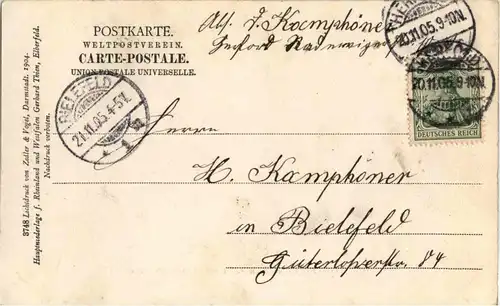 POSTKARTE.
WELTPOSTVEREIN.
CARTE-POSTALE.
UNION POSTALE UNIVERSELLE.
Abs. J. Kaemphöner
Herford
HERFORD
20.11.05.9-10N.
HERFORD
20.11.05.9-10N.
DEUTSCHES REICH
BIELEFELD
21.11.05.4-5V.
Herrn
H. Kaemphöner
in Bielefeld
Güterloherstr. 84
3748 Lichtdruck von Zedler & Vogel, Darmstadt. 1904.
Hauptniederlage f. Rheinland und Westfalen Gerhard Thien, Elberfeld.
Nachdruck verboten.